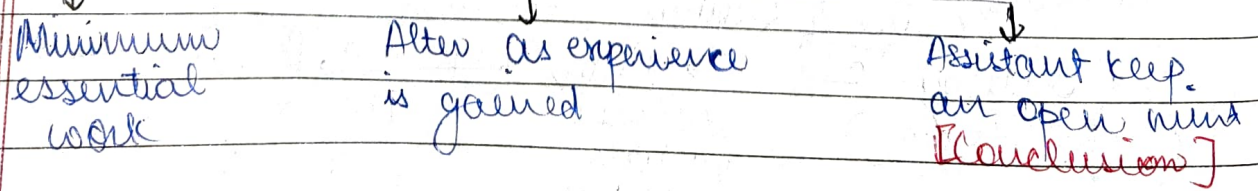 Minimum
essential
work
Alter as experience
is gained
Assistant keep
an open mind
[Conclusion]